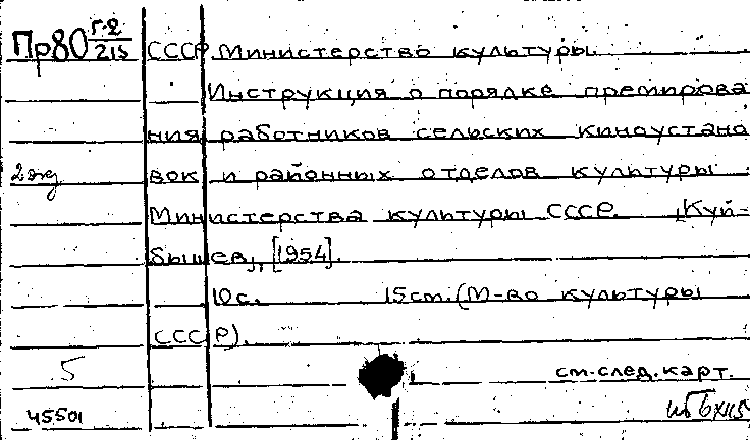 Пр80 г.2/215 СССР. Министерство культуры.
Инструкция о порядке премирова
ния работников сельских киноустано
2 экз вок и районных отделов культуры
Министерства культуры СССР. [Куй-
бышев], [1954].
10 с. 15 см. (М-во культуры
СССР).
5
см. след. карт.
45501